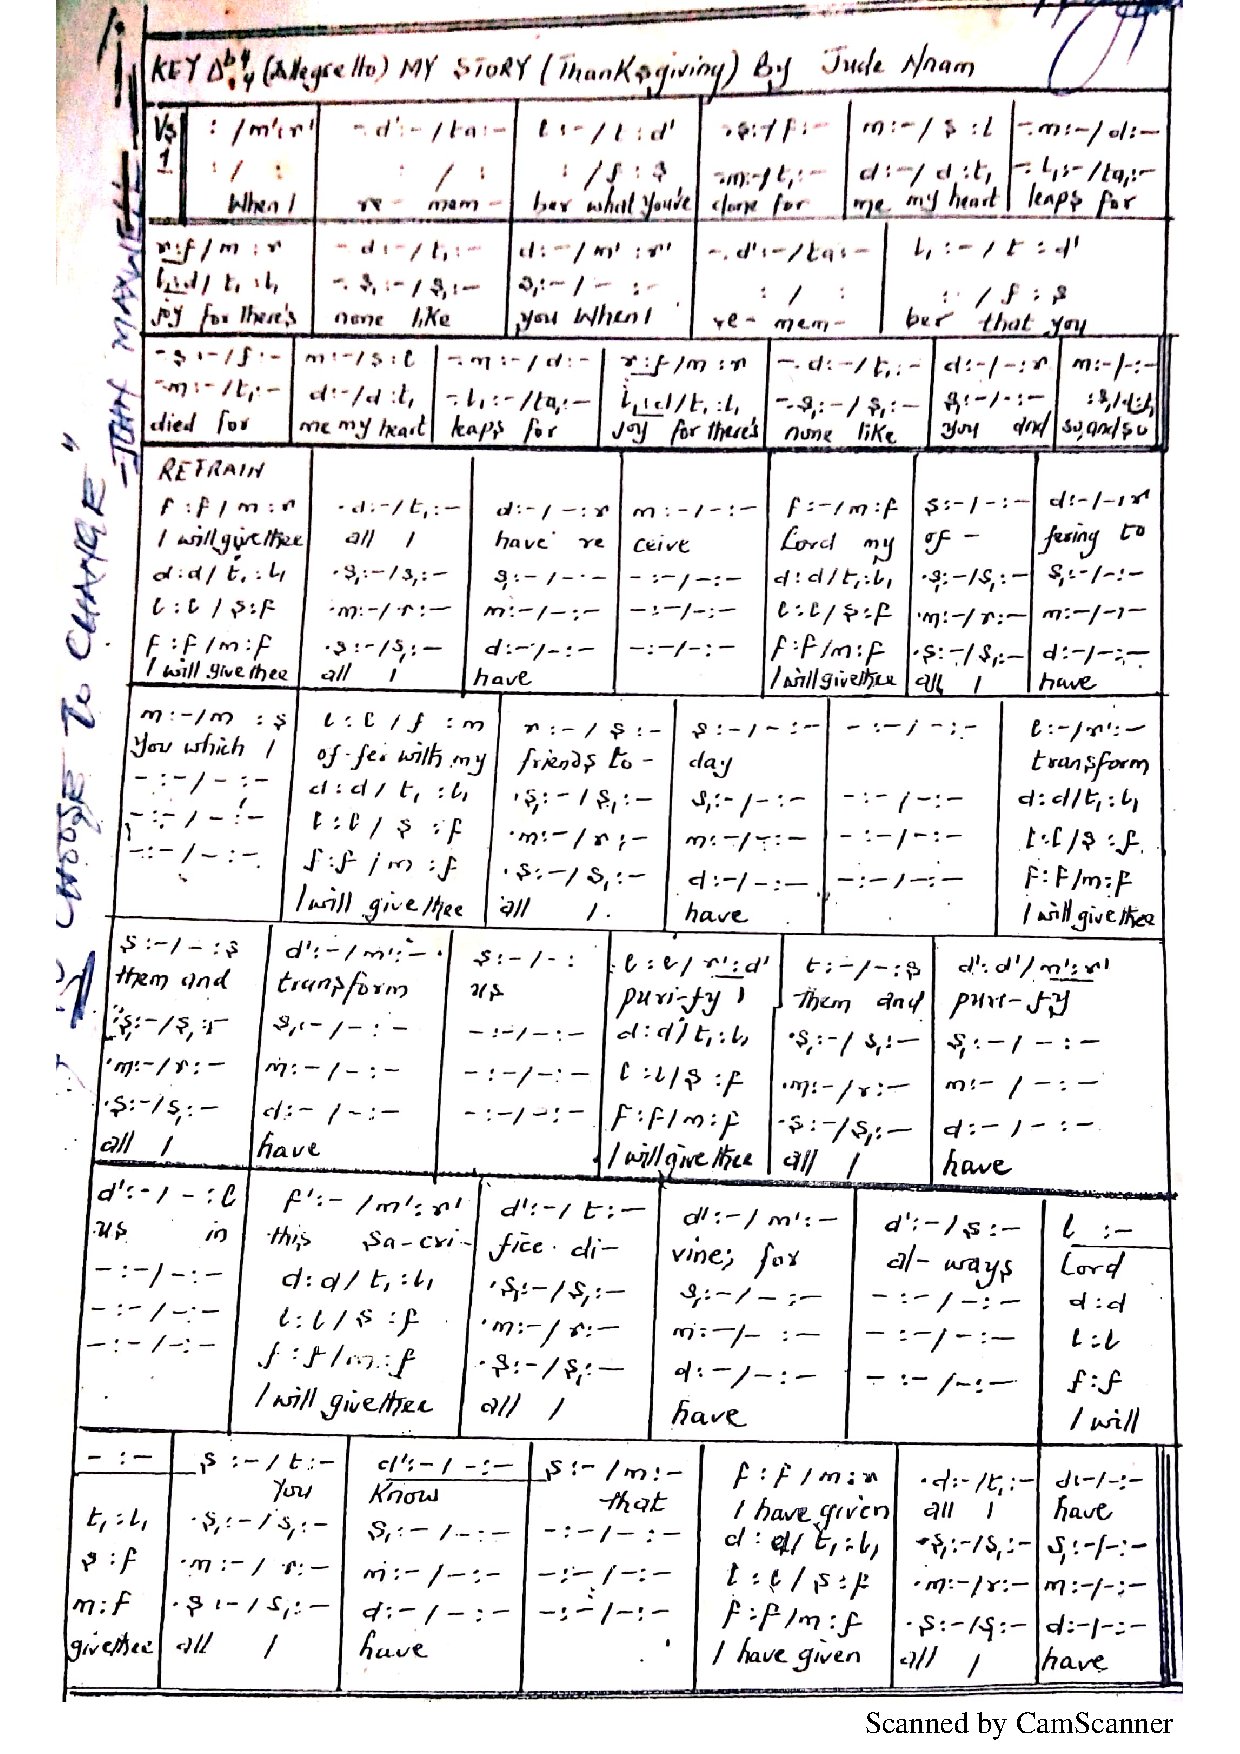 KEY Ab 4/4 (Allegretto) MY STORY (Thanksgiving) By Jude Nnam
Vs : / m':r' | -. d':- / ta:- | l :- / t : d' | -. s:- / f :- | m:- / s : l | -. m:- / d:-
1 : / : | : / : | : / f : s | -. m:- / t,:- | d:- / d : t, | -. l,:- / ta,:-
When I | re - mem - | ber what you've | done for | me my heart | leaps for
r:f / m : r | -. d:- / t,:- | d:- / m' : r' | -. d':- / ta:- | l, :- / t : d'
l,:d / t, : l, | -. s,:- / s,:- | s,:- / - :- | : / : | : / f : s
joy for there's | none like | you When I | re - mem - | ber that you
-. s :- / f :- | m:- / s : l | -. m :- / d :- | r:f / m : r | -. d:- / t,:- | d:- / - : r | m:- / - :-
-. m:- / t,:- | d:- / d : t, | -. l,:- / ta,:- | l,:d / t,:l, | -. s,:- / s,:- | s,:- / - :- | : s, / d:t,
died for | me my heart | leaps for | joy for there's | none like | you and | so, and so
RETRAIN
f : f / m : r | . d:- / t,:- | d:- / - : r | m :- / - :- | f :- / m : f | s:- / - :- | d:- / - : r
I will give thee | all I | have re | ceive | Lord my | of - | fering to
d:d / t, : l, | . s,:- / s,:- | s,:- / - :- | - :- / - :- | d:d / t,:l, | . s,:- / s,:- | s,:- / - :-
l : l / s : f | . m:- / r :- | m:- / - :- | - :- / - :- | l : l / s : f | . m:- / r:- | m:- / - :-
f : f / m : f | . s:- / s,:- | d:- / - :- | - :- / - :- | f : f / m : f | . s:- / s,:- | d:- / - :-
I will give thee | all I | have | I will give thee | all I | have
m:- / m : s | l : l / f : m | r :- / s :- | s :- / - :- | - :- / - :- | l :- / r':-
you which I | of-fer with my | friends to - | day | transform
- :- / - :- | d : d / t, : l, | . s,:- / s,:- | s,:- / - :- | - :- / - :- | d:d / t,:l,
- :- / - :- | l : l / s : f | . m:- / r :- | m:- / - :- | - :- / - :- | l:l / s : f
- :- / - :- | f : f / m : f | . s:- / s,:- | d:- / - :- | - :- / - :- | f : f / m:f
I will give thee | all I | have | I will give thee
s :- / - : s | d':- / m':- . | s :- / - : | l : l / r':d' | t :- / - : s | d':d' / m':r'
them and | transform | us | puri-fy | them and | puri-fy
. s,:- / s,:- | s,:- / - :- | - :- / - :- | d:d / t,:l, | . s,:- / s,:- | s,:- / - :-
. m:- / r :- | m:- / - :- | - :- / - :- | l : l / s : f | . m:- / r:- | m:- / - :-
. s:- / s,:- | d:- / - :- | - :- / - :- | f : f / m : f | . s:- / s,:- | d:- / - :-
all I | have | I will give thee | all I | have
d':- / - : l | f':- / m':r' | d':- / t :- | d':- / m':- | d':- / s :- | l :-
us in | this Sa-cri- | fice di- | vine; for | al- ways | Lord
- :- / - :- | d:d / t,:l, | . s,:- / s,:- | s,:- / - :- | - :- / - :- | d:d
- :- / - :- | l : l / s : f | . m:- / r:- | m:- / - :- | - :- / - :- | l:l
- :- / - :- | f : f / m : f | . s:- / s,:- | d:- / - :- | - :- / - :- | f:f
I will give thee | all I | have | I will
- :- | s :- / t :- | d':- / - :- | s:- / m:- | f : f / m : r | . d:- / t,:- | d:- / - :-
You | Know | that | I have given | all I | have
t,:l, | . s,:- / s,:- | s,:- / - :- | - :- / - :- | d : d / t,:l, | . s,:- / s,:- | s,:- / - :-
s : f | . m:- / r:- | m:- / - :- | - :- / - :- | l : l / s:f | . m:- / r:- | m:- / - :-
m:f | . s :- / s,:- | d:- / - :- | - :- / - :- | f : f / m : f | . s:- / s,:- | d:- / - :-
give thee | all I | have | I have given | all I | have
CHOOSE To CHANGE"
-JOHN MAXWELL
Scanned by CamScanner